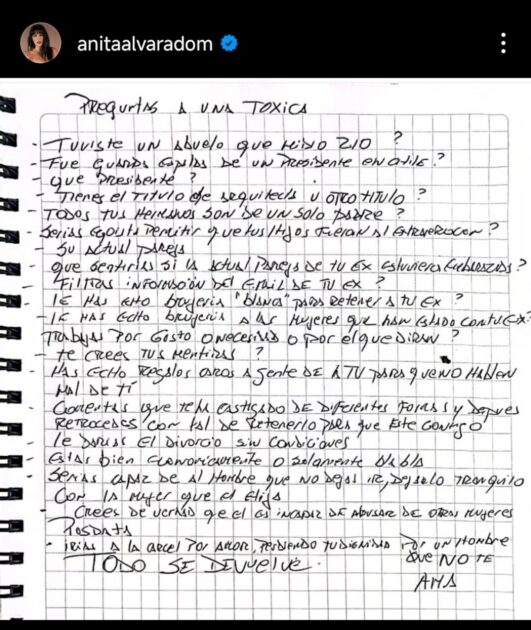 anitaalvaradom
PREGUNTAS A UNA TOXICA
- TUVISTE UN ABUELO QUE MIDIO 210 ?
- FUE GUARDA ESPALDAS DE UN PRESIDENTE EN CHILE ?
- QUE PRESIDENTE ?
- TIENES EL TITULO DE ARQUITECTA U OTRO TITULO ?
- TODOS TUS HERMANOS SON DE UN SOLO PADRE ?
- SERIAS EGOISTA PERMITIR QUE TUS HIJOS FUERAN AL EXTRANJERO CON ?
- SU ACTUAL PAREJA
- QUE SENTIRIAS SI LA ACTUAL PAREJA DE TU EX ESTUVIERA EMBARAZADA ?
- FILTRAS INFORMACION DEL EMAIL DE TU EX ?
- LE HAS ECHO BRUJERIA "BLANCA" PARA RETENER A TU EX ?
- LE HAS ECHO BRUJERIA A LAS MUJERES QUE HAN ESTADO CON TU EX ?
TRABAJAS POR GUSTO O NECESIDAD O POR EL QUE DIRAN ?
- TE CREES TUS MENTIRAS ?
- HAS ECHO REGALOS CAROS A GENTE DE LA TV PARA QUE NO HABLEN
MAL DE TÍ
- COMENTAS QUE TE HA CASTIGADO DE DIFERENTES FORMAS Y DEPUES
RETROCEDES CON TAL DE RETENERLO PARA QUE ESTE CONTIGO
- LE DARIAS EL DIVORCIO SIN CONDICIONES
- ESTAS BIEN ECONOMICAMENTE O SOLAMENTE BLA BLA
- SERIAS CAPAZ DE AL HOMBRE QUE NO DEJAS IR, DEJALO TRANQUILO
CON LA MUJER QUE EL ELIJA
- CREES DE VERDAD QUE EL ES INCAPAZ DE ABUSAR DE OTRAS MUJERES
POSDATA
- IRIAS A LA CARCEL POR AMOR, PERDIENDO TU DIGNIDAD POR UN HOMBRE
QUE NO TE
AMA
TODO SE DEVUELVE.